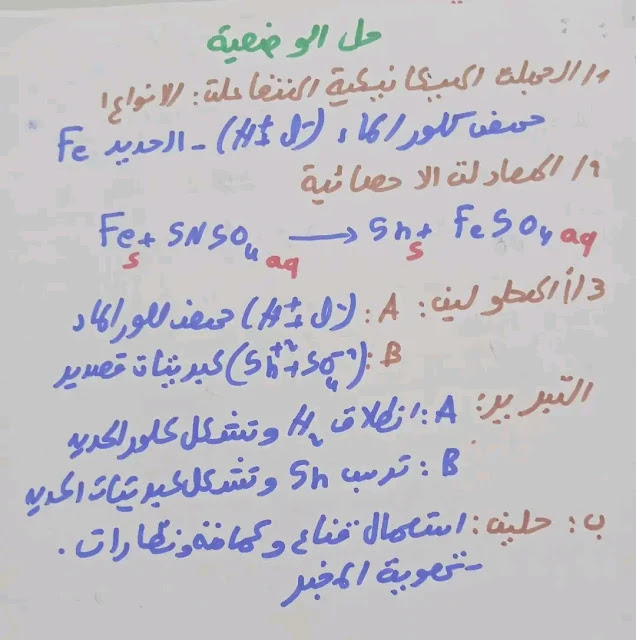 حل الوضعية
1/ الجملت الميكانيكية المتفاعلت: الانواع
حمض كلور الماء (H⁺+Cl⁻) - الحديد Fe
2/ المعادلت الاحصائية
Feₛ + SNSO₄ aq → Snₛ + FeSO₄ aq
3/أ/ المحلولين: A: (H⁺+Cl⁻) حمض كلور الماء
B: (Sn⁺²+SO₄⁻²) كبريتات قصدير
التبرير: A: انطلاق H₂ وتشكل كلور الحديد
B: ترسب Sn وتشكل كبريتات الحديد
ب: حلين: استعمال قناع وكمامة ونظارات.
- تهوية المخبر